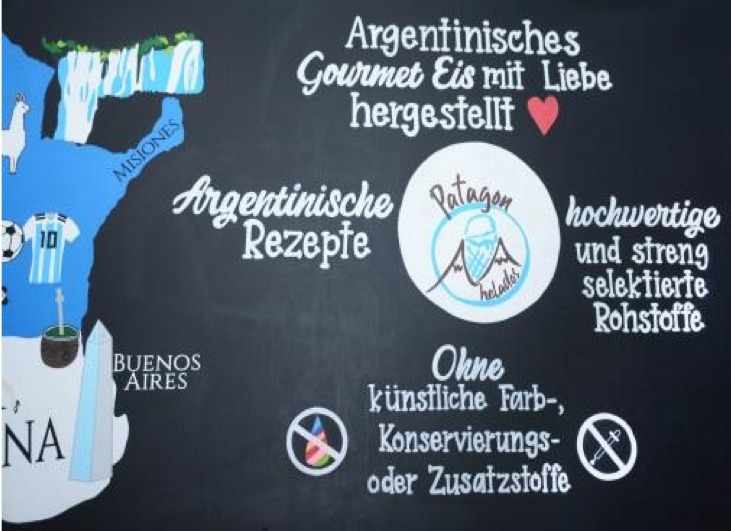 Argentinisches
Gourmet Eis mit Liebe
hergestellt
MISIONES
Argentinische
Rezepte
Patagon
helados
hochwertige
und streng
selektierte
Rohstoffe
10
BUENOS
AIRES
NA
Ohne
künstliche Farb-,
Konservierungs-
oder Zusatzstoffe